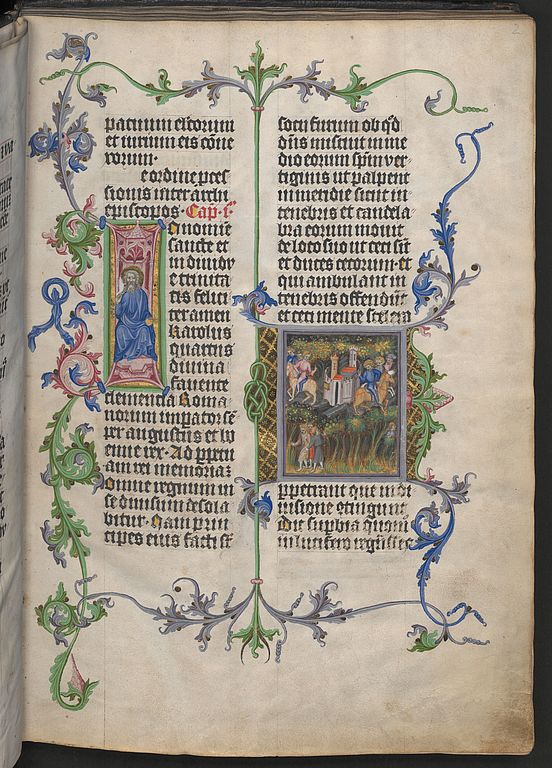 2
et iurium eis
De ordine proces
sionis inter archi
episcopos. Cap. i.
In nomine
sancte et
individu
e trinita
tis felici
ter amen
Karolus
quartus
divina
favente
clementia Roma
norum imperator se
per augustus et bo
emie rex. Ad
rei
Omne regnum in
se divisum desola
bitur. Nam prin
cipes eius facti st
socii furum ob qd
dns miscuit in me
dio eorum spm ver
tiginis ut palpent
in meridie sicut in
tenebris et candela
bra eorum movit
de loco suo ut ceci sint
et duces cecorum. Et
qui ambulant in
tenebris offendut
et ceci mente scelera
ppetrant que in di
visione
Dic
in lucifero